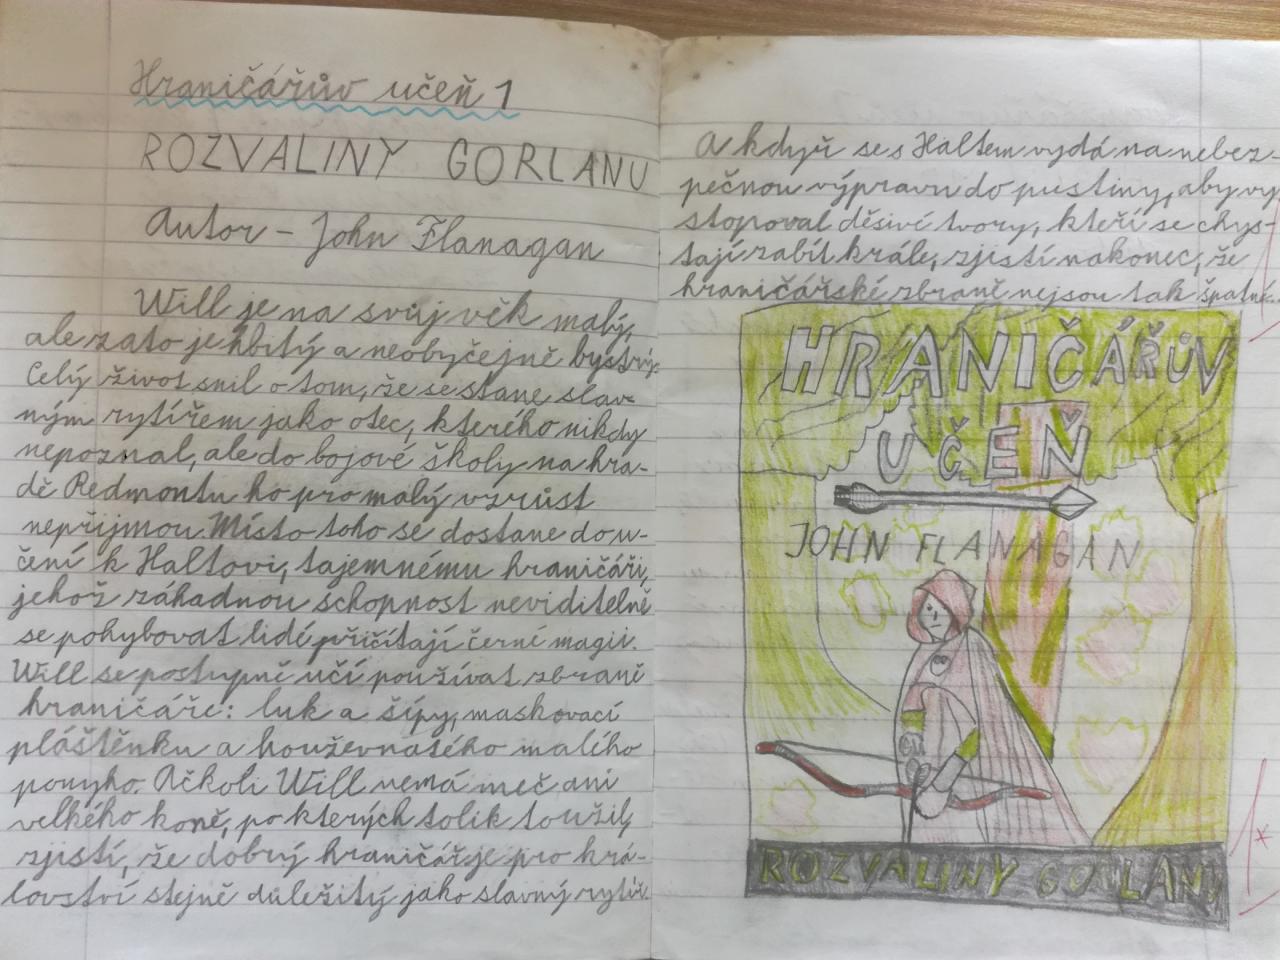 Hraničářův učeň 1
ROZVALINY GORLANU
Autor – John Flanagan
Will je na svůj věk malý,
ale zato je hbitý a neobyčejně bystrý.
Celý život snil o tom, že se stane slav-
ným rytířem jako otec, kterého nikdy
nepoznal, ale do bojové školy na hra-
dě Redmontu ho pro malý vzrůst
nepřijmou. Místo toho se dostane do u-
čení k Haltovi, tajemnému hraničáři,
jehož záhadnou schopnost neviditelně
se pohybovat lidé přičítají černé magii.
Will se postupně učí používat zbraně
hraničáře: luk a šípy, maskovací
pláštěnku a houževnatého malého
ponyho. Ačkoli Will nemá meč ani
velkého koně, po kterých tolik toužil,
zjistí, že dobrý hraničář je pro krá-
lovství stejně důležitý jako slavný rytíř.
A když se s Haltem vydá na nebez-
pečnou výpravu do pustiny, aby vy-
stopoval děsivé tvory, kteří se chys-
tají zabít krále, zjistí nakonec, že
hraničářské zbraně nejsou tak špatné.
HRANIČÁŘŮV
UČEŇ
JOHN FLANAGAN
ROZVALINY GORLANU
1*